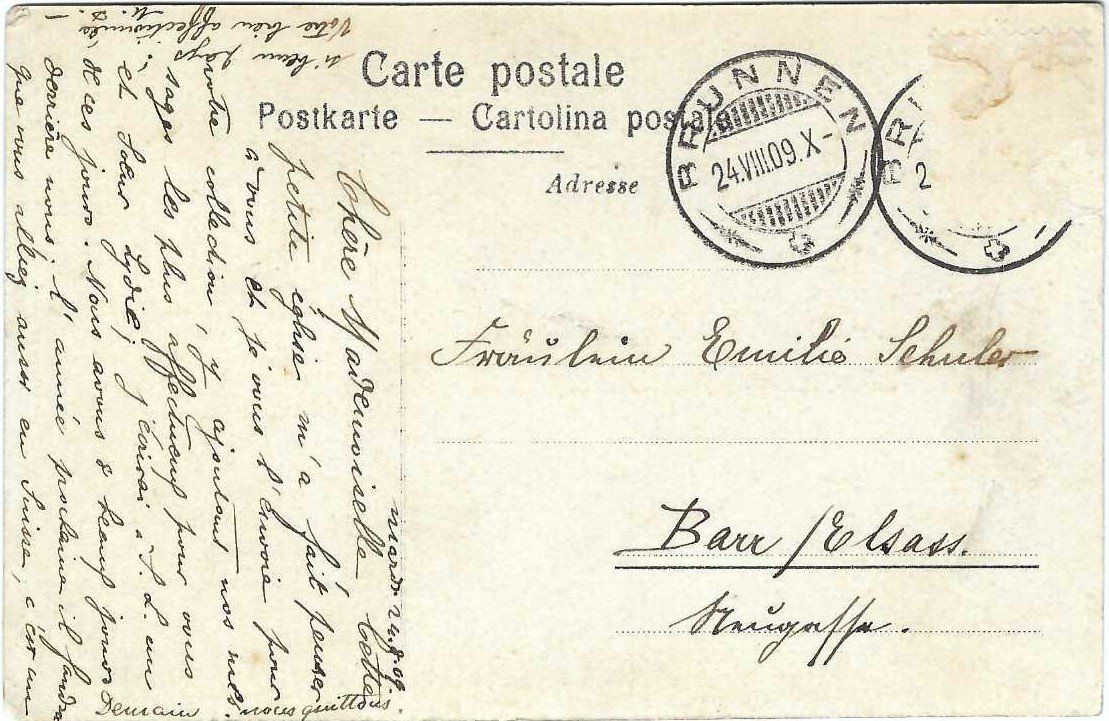 Carte postale
Postkarte — Cartolina postale
Adresse
BRUNNEN
24.VIII.09.X-
BRU
2
Fräulein Emilie Schuler
Barr / Elsass.
Neugasse.
mardi 24.8.09.
Chère Mademoiselle, cette
petite église m'a fait penser
à vous et je vous l'envoie pour
votre collection, y ajoutant nos mes-
sages les plus affectueux pour vous
et Sœur Lydie; j'écrirai à S. L. un
de ces jours. Nous avons 2 beaux jours
derrière nous, l'année prochaine il faudra
que vous alliez aussi en Suisse, c'est un
si beau pays
Votre bien affectionnée
Demain nous quittons.